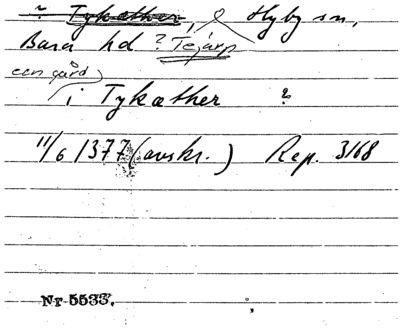 ? Tykæther, Hyby sn,
Bara hd ? Tejarp
een gård
i Tykæther ?
11/6 1377 (avskr.) Rep. 3168
Nr 5533.